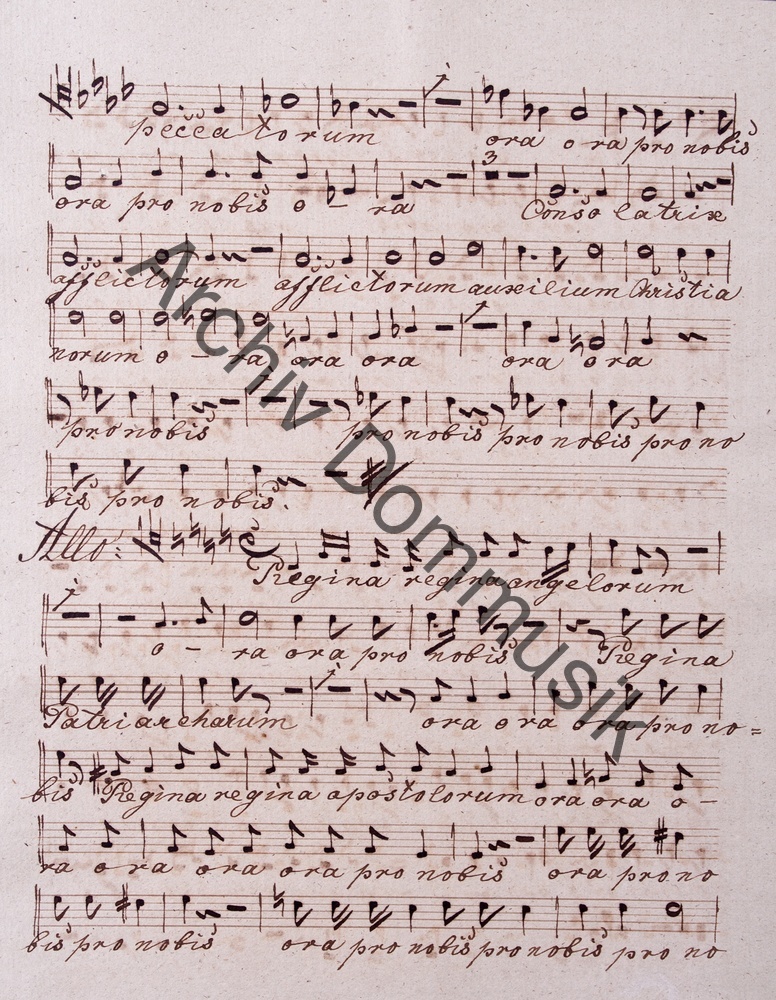 peccatorum ora ora pro nobis
3
ora pro nobis o - ra Conso latrix
afflictorum afflictorum auxilium Christia
norum o - ra ora ora ora ora
pro nobis pro nobis pro nobis pro no
bis pro nobis.
Allo:
Regina regina angelorum
o - ra ora pro nobis Regina
Patriarcharum ora ora ora pro no=
bis Regina regina apostolorum ora ora o -
ra ora ora ora pro nobis ora pro no
bis pro nobis ora pro nobis pro nobis pro no
Archiv Dommusik